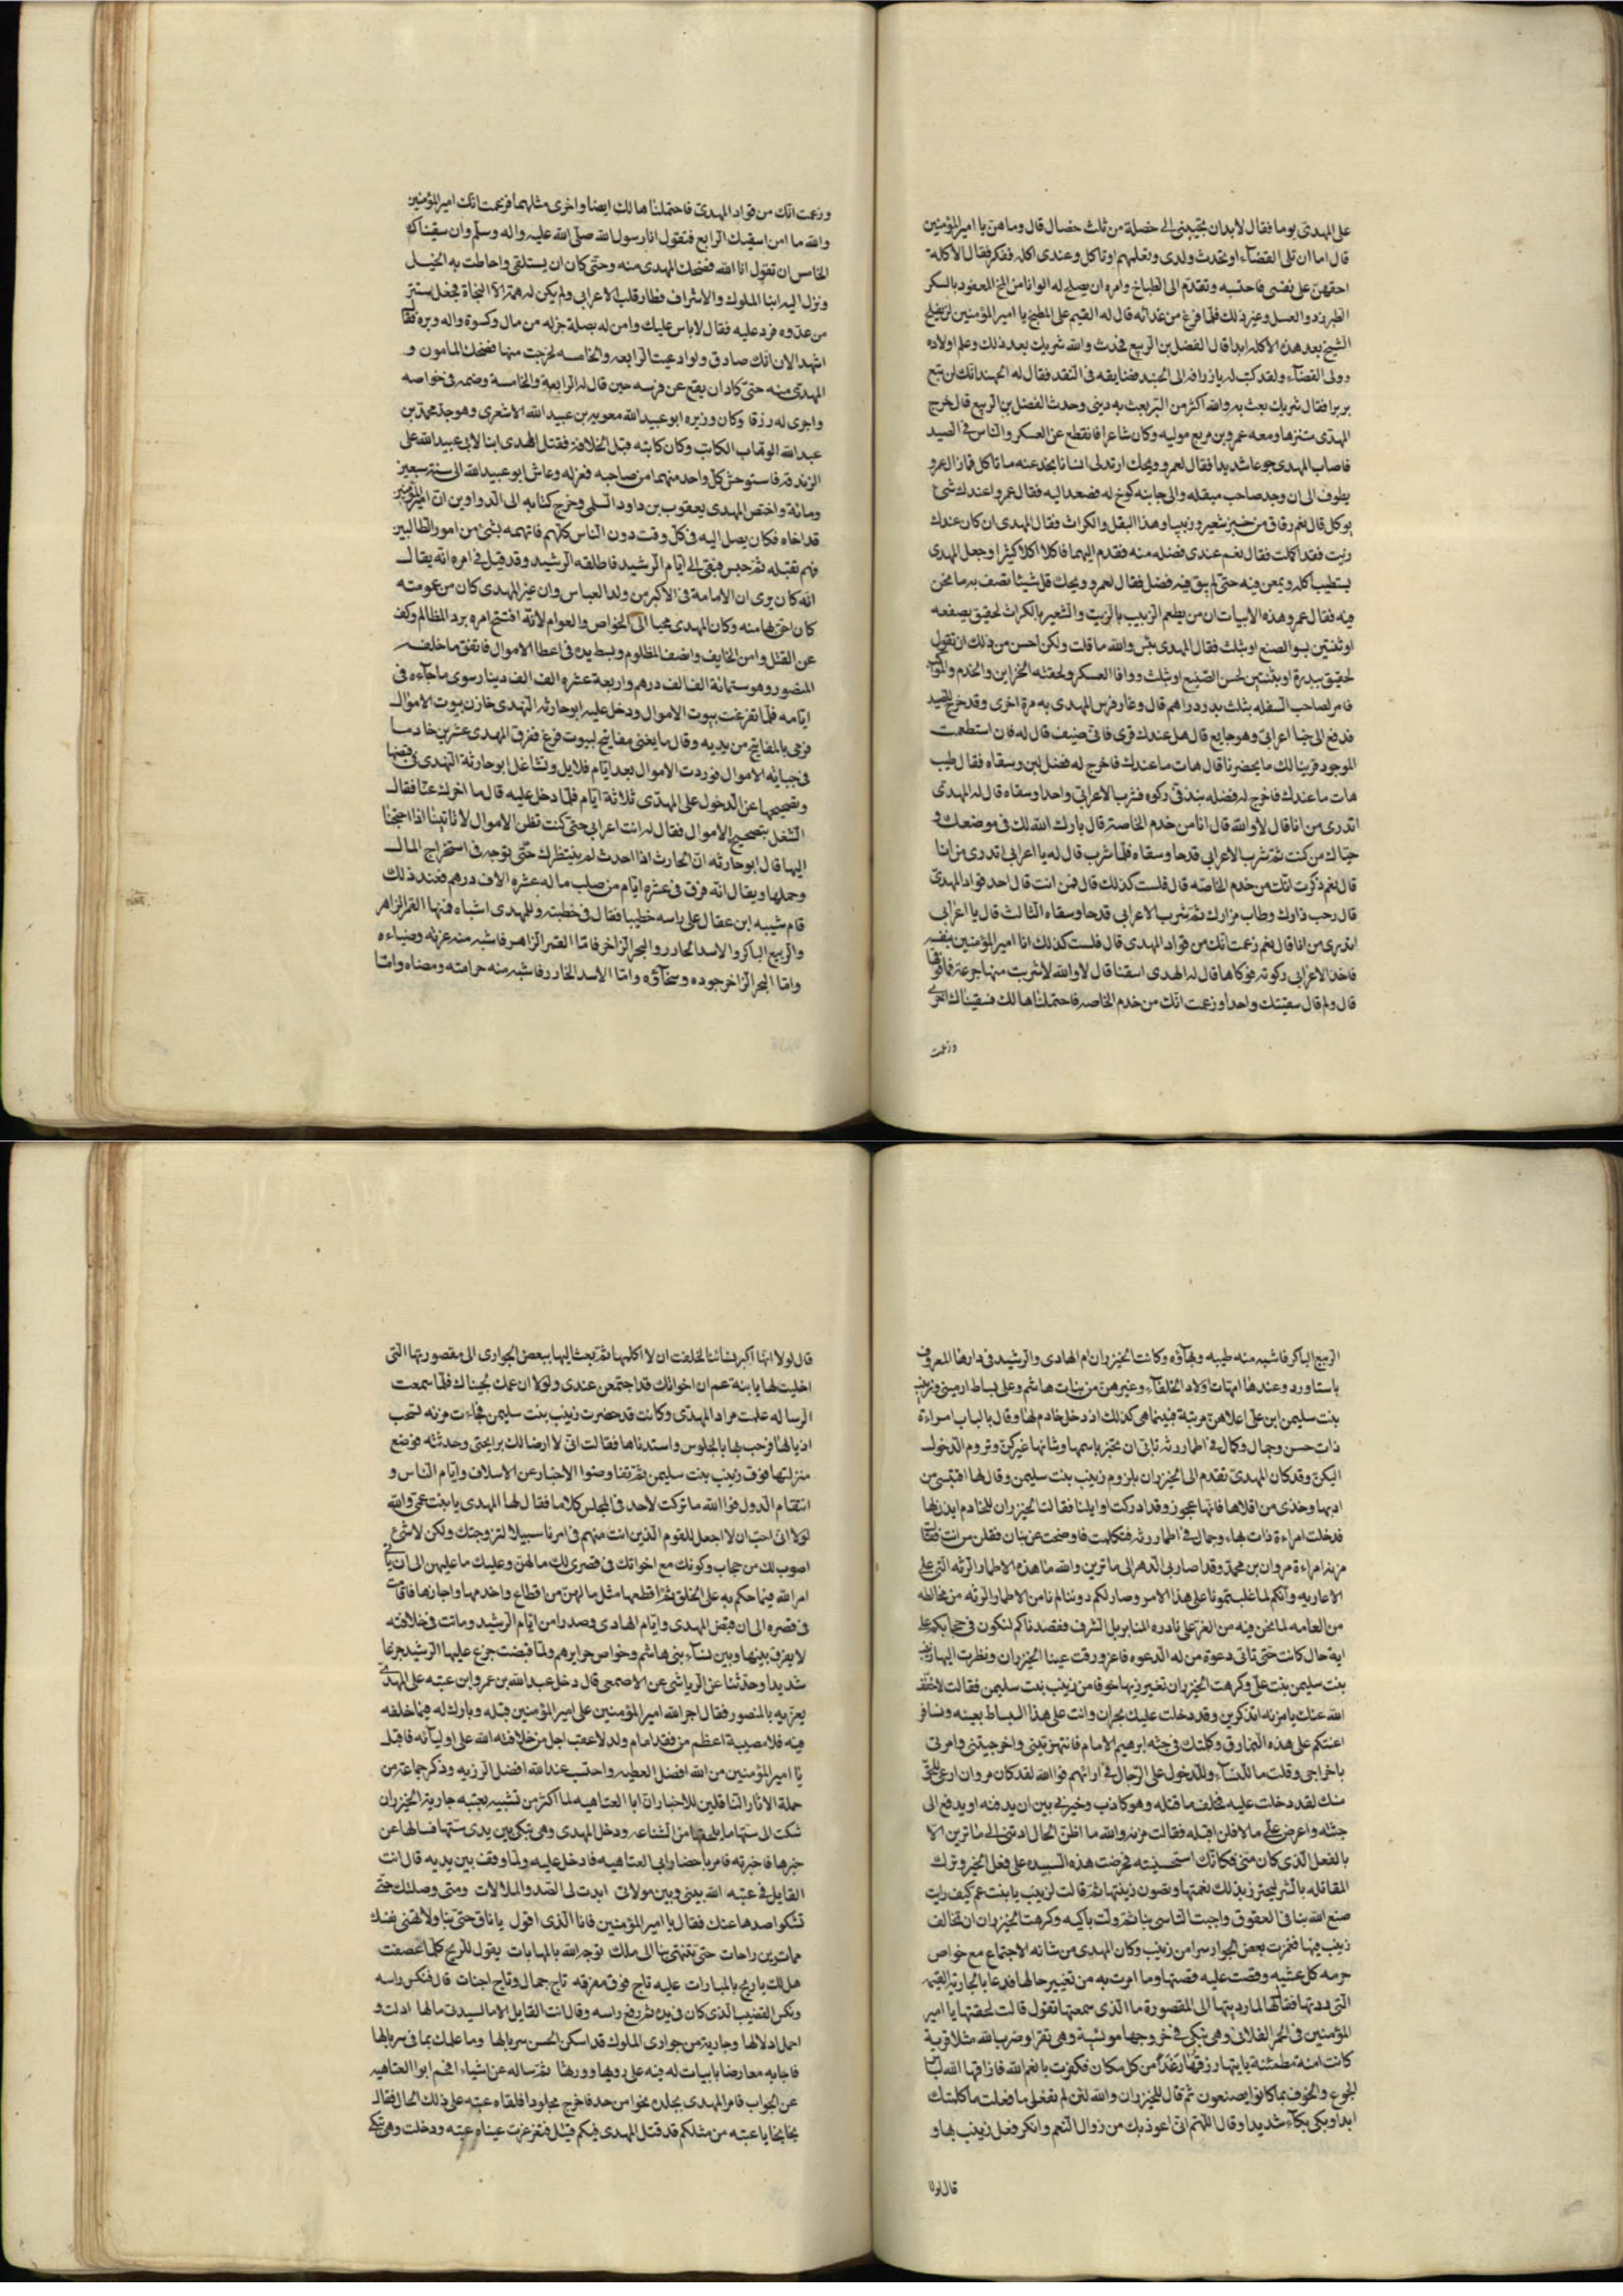 على المهدى يوما فقال لابد ان تجيبنى الى خصلة من ثلث خصال قال وما هن يا امير المؤمنين
قال اما ان تلى القضآء او تحدث ولدى وتعلمهم او تاكل عندى اكله ففكر فقال الاكلة
اخفهن على نفسى فاحتسبه وتقدم الى الطباخ وامره ان يصلح له الوانا من المخ المعقود بالسكر
الطبرزد والعسل وغير ذلك فلما فرغ من غدائه قال له القيم على المطبخ يا امير المؤمنين لن يفلح
الشيخ بعد هذه الاكله ابدا قال الفضل بن الربيع فحدث والله شريك بعد ذلك وعلم اولاده
وولى القضآء ولقد كتب له بارزاقه الى الجهبذ فضايقه فى النقد فقال له الجهبذ انك لن تبع
بربرا فقال شريك بعت به والله اكثر من البر بعت به دينى وحدث الفضل بن الربيع قال خرج
المهدى متنزها ومعه عمرو بن مربع موليه وكان شاعرا فانقطع عن العسكر والناس فى الصيد
فاصاب المهدى جوعا شديدا فقال لعمرو ويحك ارتد لى انسانا نجد عنده ما ناكل فما زال عمرو
يطوف الى ان وجد صاحب مبقله والى جانبه كوخ له فصعد اليه فقال عمرو اعندك شئ
يوكل قال نعم رقاق من خبز شعير وربيبا وهذا البقل والكراث فقال المهدى ان كان عندك
زيت فقد اكملت فقال نعم عندى فضله منه فقدم اليهما فاكلا اكلا كثيرا وجعل المهدى
يستطيب اكله ويمعن فيه حتى لم يبق فيه فضل فقال لعمرو ويحك قل شيئا تصف به ما نحن
فيه فقال عمرو هذه الابيات ان من يطعم الزبيب بالزيت والشعير بالكراث لحقيق بصفعه
او ثنتين بسو الصنع او بثلث فقال المهدى بئس والله ما قلت ولكن احسن من ذلك ان تقول
لحقيق ببدرة او بثنتين لحسن الصنيع او بثلث ووافا العسكر ولحقته الخزاين والخدم والمواكب
فامر لصاحب المبقله بثلث بدر دراهم قال وغار فرس المهدى به مرة اخرى وقد خرج للصيد
فدفع الى خبا اعرابى وهو جايع قال هل عندك قرى فانى ضيف قال له فان استطعمت
الموجود قربنا لك ما يحضرنا قال هات ما عندك فاخرج له فضل لبن وسقاه فقال طيب
هات ما عندك فاخرج له فضله نبيذ فى ركوه فشرب الاعرابى واحدا وسقاه قال له المهدى
اتدرى من انا قال لا والله قال انا من خدم الخاصة قال بارك الله لك فى موضعك و
حباك من كنت ثم شرب الاعرابى قدحا وسقاه فلما شرب قال له يا اعرابى اتدرى من انا
قال نعم ذكرت انك من خدم الخاصه قال فلست كذلك قال فمن انت قال احد قواد المهدى
قال رحب دارك وطاب مزارك ثم شرب الاعرابى قدحا وسقاه الثالث قال يا اعرابى
اتدرى من انا قال نعم زعمت انك من قواد المهدى قال فلست كذلك انا امير المؤمنين بنفسه
فاخذ الاعرابى ركوته فوكاها قال له المهدى اسقنا قال لا والله لا شربت منها جرعة فما فوقها
قال ولم قال سقيتك واحدا وزعمت انك من خدم الخاصه فاحتملناها لك فسقيناك اخرى
وزعمت
وزعمت انك من قواد المهدى فاحتملناها لك ايضا واخرى مثلهما فزعمت انك امير المؤمنين
والله ما امن اسقيك الرابع فتقول انا رسول الله صلى الله عليه واله وسلم وان سقيناك
الخامس ان تقول انا الله فضحك المهدى منه وحتى كان ان يستلقى واحاطت به الخيل
ونزل اليه ابنا الملوك والاشراف فطار قلب الاعرابى ولم يكن له همة الا النجاة فجعل يستتر
من عدوه فرد عليه فقال لا باس عليك وامن له بصلة جزله من مال وكسوة واله وبره فقال
اشهد الان انك صادق ولو ادعيت الرابعه والخامسه لخرجت منها فضحك المامون و
المهدى منه حتى كاد ان يقع عن فرسه حين قال له الرابعة والخامسة وضمه فى خواصه
واجرى له رزقا وكان وزيره ابو عبيد الله معويه بن عبيد الله الاشعرى وهو جد محمد بن
عبد الله الوهاب الكاتب وكان كاتبه قبل الخلافة فقتل المهدى ابنا لابى عبيد الله على
الزندقه فاستوحش كل واحد منهما من صاحبه فعزله وعاش ابو عبيد الله الى سنة سبعين
ومائة واختص المهدى يعقوب بن داود السلمى وخرج كتابه الى الدواوين ان امير المؤمنين
قد اخاه فكان يصل اليه فى كل وقت دون الناس كلهم فاتهمه بشئ من امور الطالبين
فهم بقتله ثم حبس فبقى الى ايام الرشيد فاطلقه الرشيد وقد قيل فى امره انه يقال
انه كان يرى ان الامامة فى الاكبر من ولد العباس وان غير المهدى كان من عمومته
كان احق بها منه وكان المهدى محببا الى الخواص والعوام لانه افتتح امره برد المظالم وكف
عن القتل وامن الخايف وانصف المظلوم وبسط يده فى اعطا الاموال فانفق ما خلفه
المنصور وهو ستمائة الف الف درهم واربعة عشره الف الف دينار سوى ما جآءه فى
ايامه فلما تفرغت بيوت الاموال ودخل عليه ابو حارثه النهدى خازن بيوت الاموال
فرمى بالمفاتيح من يديه وقال ما يغنى مفاتيح لبيوت فرغ ففرق المهدى عشرين خادما
فى جبايه الاموال فوردت الاموال بعد ايام قلايل وتشاغل ابو حارثة النهدى فى قبضها
وتصحيحها عن الدخول على المهدى ثلاثة ايام فلما دخل عليه قال ما اخرك عنا فقال
الشغل بتصحيح الاموال فقال له انت اعرابى حتى كنت تظن الاموال لا تاتينا اذا احتجنا
اليها قال ابو حارثه ان الحادث اذا احدث لم ينتظرك حتى يوجه فى استخراج المال
وحملها ويقال انه فرق فى عشره ايام من صلب ماله عشره الاف درهم فعند ذلك
قام شيبه ابن عقال على راسه خطيبا فقال فى خطبته وللمهدى اشباه فمنها القمر الزاهر
والربيع الباكر والاسد الخادر والبحر الزاخر فاما القمر الزاهر فاشبه منه عزته وضياءه
واما البحر الزاخر جوده وسخآؤه واما الاسد الخادر فاشبه منه حرامته ومضاه واما
الربيع الباكر فاشبه منه طيبه وبهآؤه وكانت الخيزران ام الهادى والرشيد فى دارها المعروف
باستاورد وعندها امهات اولاد الخلفآء وغيرهن من بنات هاشم وعلى بساط ارمينى وزينب
بنت سليمن ابن على اعلاهن مرتبة فبينما هى كذلك اذ دخل خادم لها وقال بالباب امراءة
ذات حسن وجمال وكمال فى اطمار رثه تابى ان تخبر باسمها وشانها غيركن وتروم الدخول
اليكن وقد كان المهدى تقدم الى الخيزران بلزوم زينب بنت سليمن وقال لها اقتبسى من
ادبها وخذى من اخلاقها فانها عجوز وقد ادركت اوايلنا فقالت الخيزران للخادم ايذن لها
فدخلت امراءة ذات بهاء وجمال فى اطمار رثه فتكلمت فاوضحت عن بنان فقلن من انت فقالت
مزنه امراءة مروان بن محمد وقد اصار بى الدهر الى ما ترين والله ما هذه الاطمار الرثه التى على
الا عاريه وانكم لما غلبتمونا على هذا الامر وصار لكم دوننا لم نامن الاطمار الرثه من مخالطه
من العامه لما نحن فيه من الغر على نادره المنابر بل الشرف فقصدناكم لنكون فى حجابكم على
اية حال كانت حتى تاتى دعوة من له الدعوه فاغرورقت عينا الخيزران ونظرت اليها زينب
بنت سليمن بنت على وكرهت الخيزران تغير زيها خوفا من زينب بنت سليمن فقالت لا خفف
الله عنك يا مزنه اتذكرين وقد دخلت عليك بحران وانت على هذا البساط بعينه ونسا
اعنتكم على هذه النمارق وكلمتك فى جثه ابرهيم الامام فانتهرتينى واخرجتينى وامرتى
باخراجى وقلت ما للنسآء وللدخول على الرجال فى ارائهم فوا الله لقد كان مروان ارعى للحق
منك لقد دخلت عليه فحلف ما قتله وهو كاذب وخيرنى بين ان يدفنه او يدفع الى
جثته واعرض على مالا فلن اقبله فقالت مزنه والله ما اظن الحال ادتنى الى ما ترين الا
بالفعل الذى كان منى فكانك استحسنته فحرضت هذه السيده على فعل الخير وترك
المقابله بالشر ليحترز بذلك نعمتها وتصون زينتها ثم قالت لزينب يا بنت عم كيف رايت
صنع الله بنا فى العقوق واحببت التاسى بنا ثم ولت باكيه وكرهت الخيزران ان تخالف
زينب فيها فغمزت بعض الجوار سرا من زينب وكان المهدى من شانه الاجتماع مع خواص
حرمه كل عشيه وقصت عليه قصتها وما امرت به من تغيير حالها فدعا بالجارية القيمه
التى ردتها فقال لها لما رديتها الى المقصورة ما الذى سمعتها تقول قالت لحقتها يا امير
المؤمنين فى الممر الفلانى وهى تبكى فى خروجها موئسية وهى تقرا وضرب الله مثلا قرية
كانت امنة مطمئنة ياتيها رزقها رغدا من كل مكان فكفرت بانعم الله فاذاقها الله لباس
الجوع والخوف بما كانوا يصنعون ثم قال للخيزران والله لئن لم تفعلى ما فعلت ما كلمتك
ابدا وبكى بكآء شديدا وقال اللهم انى اعوذ بك من زوال النعم وانكر فعل زينب بها و
قال لولا
قال لولا انها اكبر نسائنا لحلفت ان لا اكلمها ثم بعث اليها ببعض الجوارى الى مقصورتها التى
اخليت لها يا بنة عم ان اخواتك قد اجتمعن عندى ولولا ان عمك لجيناك فلما سمعت
الرساله علمت مراد المهدى وكانت قد حضرت زينب بنت سليمن فجاءت مزنه تسحب
اذيالها فرحب بها بالجلوس واستدناها فقالت انى لا ارضا لك برايحتى وحدثته فوضع
منزلتها فوق زينب بنت سليمن ثم تفاوضوا الاخبار عن الاسلاف وايام الناس و
انتقام الدول فوا الله ما تركت لاحد فى المجلس كلاما فقال لها المهدى يا بنت عمى والله
لولا انى احب ان لا اجعل للقوم الذين انت منهم فى امرنا سبيلا لتزوجتك ولكن لا شئ
اصوب لك من حجاب وكونك مع اخواتك فى قصرى لك ما لهن وعليك ما عليهن الى ان ياتى
امر الله فيما حكم به على الخلق ثم اقطعها مثل ما لهن من اقطاع واخدمها واجازها فاقامت
فى قصره الى ان قبض المهدى وايام الهادى وصدرا من ايام الرشيد وماتت فى خلافته
لا يعرف بينها وبين نسآء بنى هاشم وخواص حرايرهم ولما قبضت جزع عليها الرشيد جزعا
شديدا وحدثنا عن الرياشى عن الاصمعى قال دخل عبد الله بن عمرو ابن عتبه على المهدى
يعزيه بالمنصور فقال اجر الله امير المؤمنين على امير المؤمنين قبله وبارك له فيما خلفه
فيه فلا مصيبة اعظم من فقد امام ولد لا عقب اجل من خلافة الله على اوليآئه فاقبل
يا امير المؤمنين من الله افضل العطيه واحتسب عند الله افضل الرزيه وذكر جماعة من
حملة الاثار الناقلين للاخبار ان ابا العتاهيه لما اكثر من تشبيبه بعتبه جارية الخيزران
شكت الى ستها ما يلحقها من الشناعه ودخل المهدى وهى تبكى بين يدى ستها فسالها عن
خبرها فاخبرته فامر باحضار ابى العتاهيه فادخل عليه ولما وقف بين يديه قال انت
القايل فى عتبه الله بينى وبين مولاتى ابدت لى الصد والملالات ومتى وصلتك حتى
تشكوا صدها عنك فقال يا امير المؤمنين فانا الذى اقول يا ناق حثى بنا ولا تهنى نفسك
مما ترين راحات حتى تنتهى بنا الى ملك توجه الله بالمهابات يقول للريح كلما عصفت
هل لك يا ريح بالمبارات عليه تاج فوق مفرقه تاج جمال وتاج اخبات قال فنكس راسه
ونكس القضيب الذى كان فى يده ثم رفع راسه وقال انت القايل الا ما لسيدت مالها ادلت و
احمل ادلالها وجارية من جوارى الملوك قد اسكن الحسن سربالها وما علمك بما فى سربالها
فاجابه معارضا بابيات له فيه على رويها ووزنها ثم ساله عن اشياء افحم ابوا العتاهيه
عن الجواب فامر المهدى بجلده نحوا من حد فاخرج مجلودا فلقاه عتبه على ذلك الحال فقال
بخا بخا يا عتبه من مثلكم قد قتل المهدى فيكم قتيل فتغرغرت عيناه عتبه ودخلت وهى تبكى